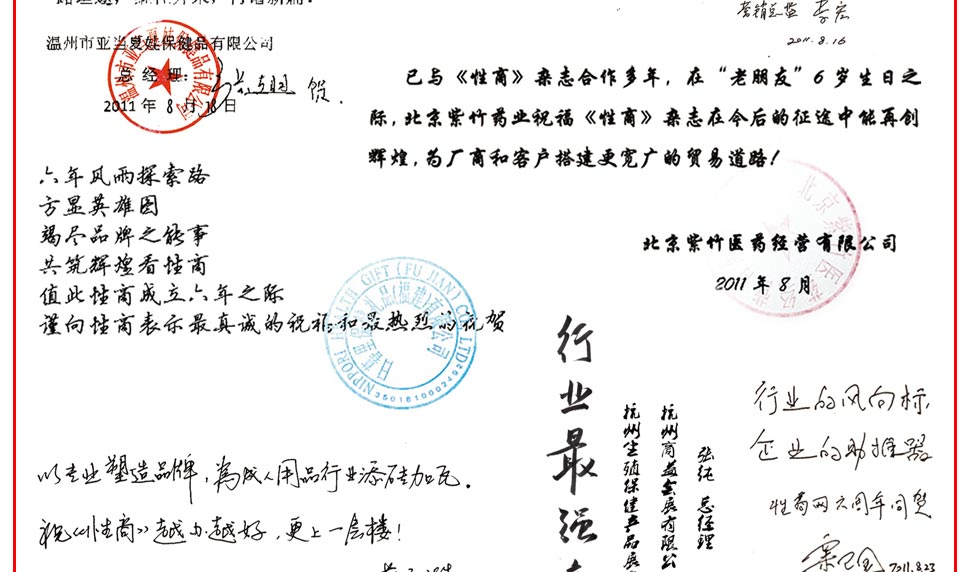 营销总监 李宏
2011.8.16
温州市亚当夏娃保健品有限公司
总经理:
贺.
2011年8月18日
已与《性商》杂志合作多年，在“老朋友”6岁生日之
际，北京紫竹药业祝福《性商》杂志在今后的征途中能再创
辉煌，为厂商和客户搭建更宽广的贸易道路！
北京紫竹医药经营有限公司
2011年8月
六年风雨探索路
方显英雄图
竭尽品牌之能事
共筑辉煌看性商
值此性商成立六年之际
谨向性商表示最真诚的祝福和最热烈的祝贺
NIPPORI HEALTH GIFT (FU JIAN) CO.LTD
品(福建)有限公司
3501810002492
以专业塑造品牌，为成人用品行业添砖加瓦.
祝《性商》越办越好，更上一层楼！
行业最强
张纯 总经理
杭州商益会展有限公
杭州生殖保健产品展
行业的风向标,
企业的助推器
性商网六周年同贺
2011.8.23